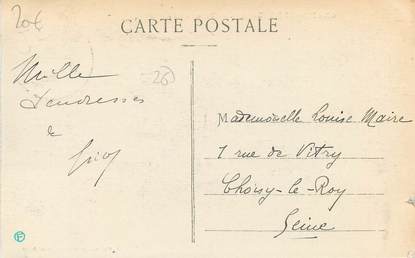 20€
CARTE POSTALE
Mille
Tendresses
26
Mademoiselle Louise Maire
7 rue de Vitry
Choisy-le-Roy
Seine